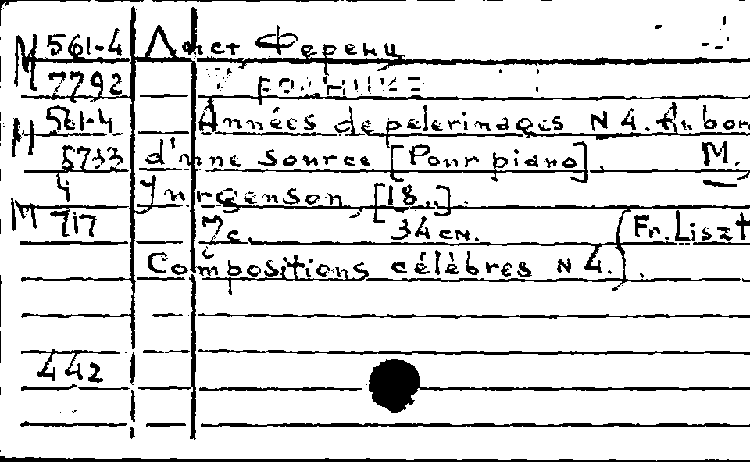 М 561-4 Лист Ференц
7792
М 561-4 Années de pelerinages N 4. Au bor
5733 d'une source [Pour piano]. M.
4 Jurgenson, [18..].
М 717 7с. 34см. (Fr. Liszt
Compositions célèbres N 4.).
442